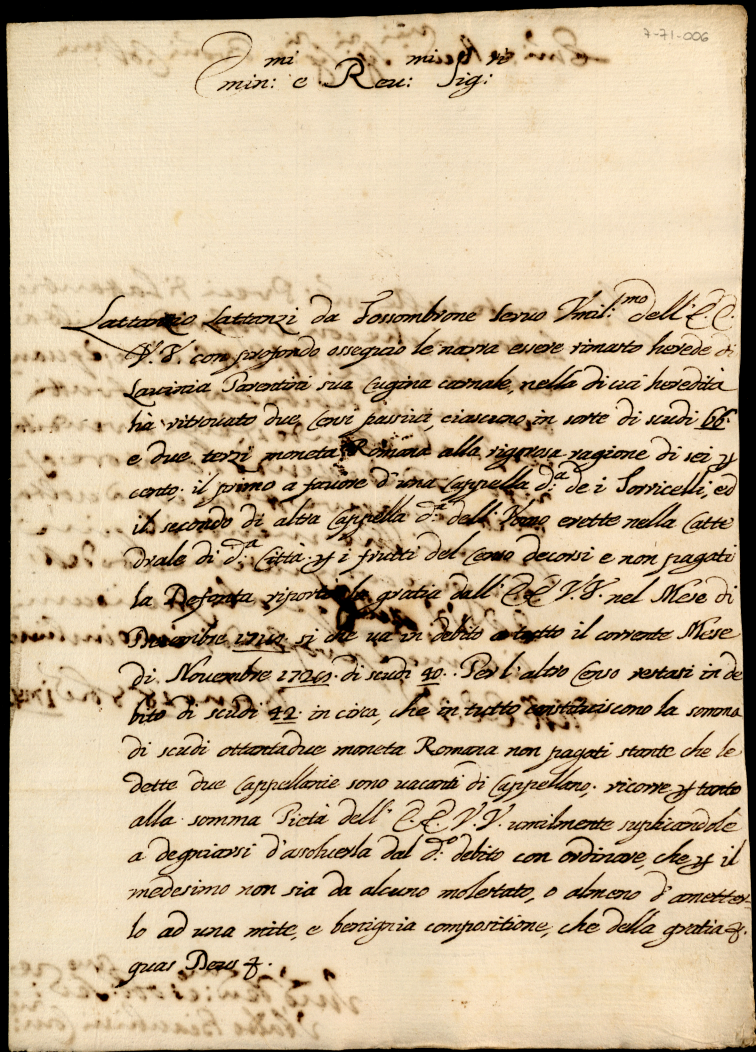 7-71-006
Emin:mi e Reu:mi Sig:ri
Lattanzio Lattanzi da Fossombrone seruo Vmil:mo dell' EE.
VV. con profondo ossequio le narra essere rimasto herede di
Lauinia Parentini sua Cugina carnale, nella di cui heredità
hà ritrouato due Censi passiui, ciascuno in sorte di scudi 66.
e due terzi moneta Romana alla rigorosa ragione di sei p
cento. il primo a fauore d'una Cappella d:a de i Torricelli, ed
il secondo di altra Cappella d:a dell' erette nella Catte
drale di d:a Città. p i frutti del Censo decorsi e non pagati
la Defonta riportò la gratia dall' EE VV. nel Mese di
Decembre si che uà in debito a tutto il corrente Mese
di Nouembre di scudi 40. Per l'altro Censo restasi in de
bito di scudi 42. in circa, che in tutto constituiscono la somma
di scudi ottantadue moneta Romana non pagati stante che le
dette due Cappellanie sono uacanti di Cappellano. ricorre p tanto
alla somma Pietà dell' EE VV. umilmente suplicandole
a degniarsi d'assoluerla dal d:o debito con ordinare, che p il
medesimo non sia da alcuno molestato, o almeno d'ametter
lo ad una mite, e benignia compositione, che della gratia &.
quas Deus &.